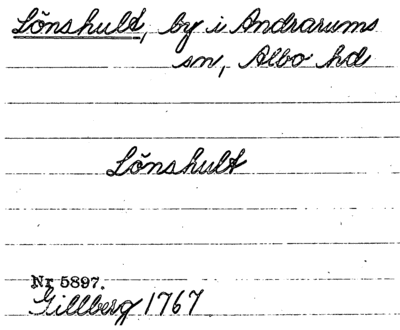 Lönshult, by i Andrarums
sn, Albo hd
Lönshult
Nr 5897.
Gillberg 1767